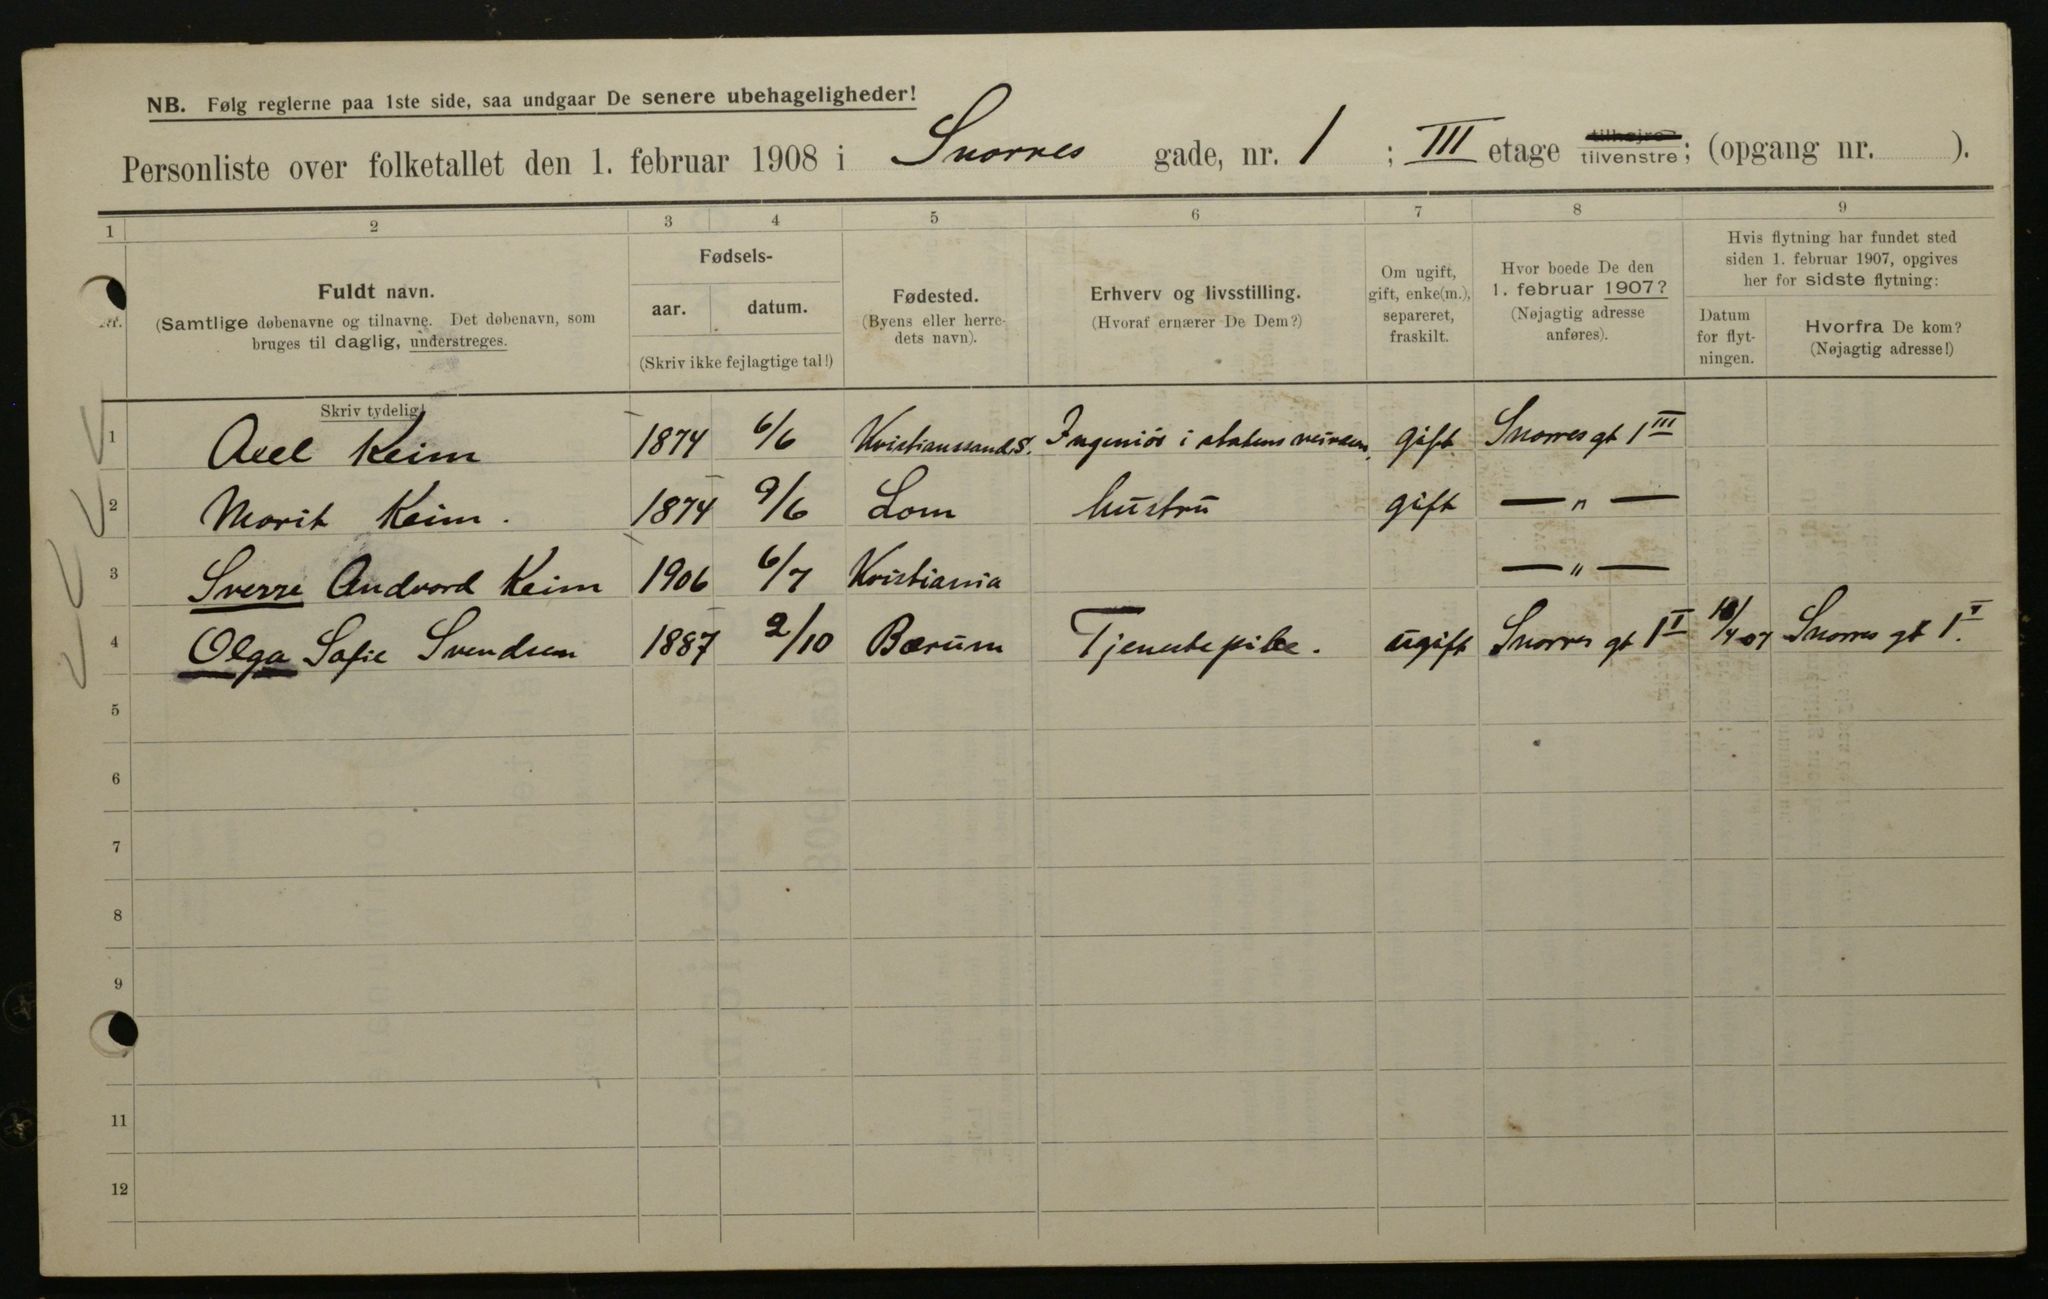 NB. Følg reglerne paa 1ste side, saa undgaar De senere ubehageligheder!
Personliste over folketallet den 1. februar 1908 i Snorres gade, nr. 1 ; III etage tilhøjre tilvenstre; (opgang nr. ).
1 2 3 4 5 6 7 8 9
Nr.
Fuldt navn.
(Samtlige døbenavne og tilnavne. Det døbenavn, som
bruges til daglig, understreges.
Skriv tydelig!
Fødsels-
aar. datum.
(Skriv ikke fejlagtige tal!)
Fødested.
(Byens eller herre-
dets navn).
Erhverv og livsstilling.
(Hvoraf ernærer De Dem?)
Om ugift,
gift, enke(m.),
separeret,
fraskilt.
Hvor boede De den
1. februar 1907?
(Nøjagtig adresse
anføres).
Hvis flytning har fundet sted
siden 1. februar 1907, opgives
her for sidste flytning:
Datum
for flyt-
ningen.
Hvorfra De kom?
(Nøjagtig adresse!)
1 Axel Keim 1874 6/6 Kristianssand S. Ingeniör i statens veivæsen, gift. Snorres gt 1 III
2 Marit Keim. 1874 9/6 Lom hustru gift — " —
3 Sverre Andvord Keim 1906 6/7 Kristiania — " —
4 Olga Sofie Svendsen 1887 2/10 Bærum Tjenestepike. ugift Snorres gt 1 I /4 07 Snorres gt 1 I.
5
6
7
8
9
11
12